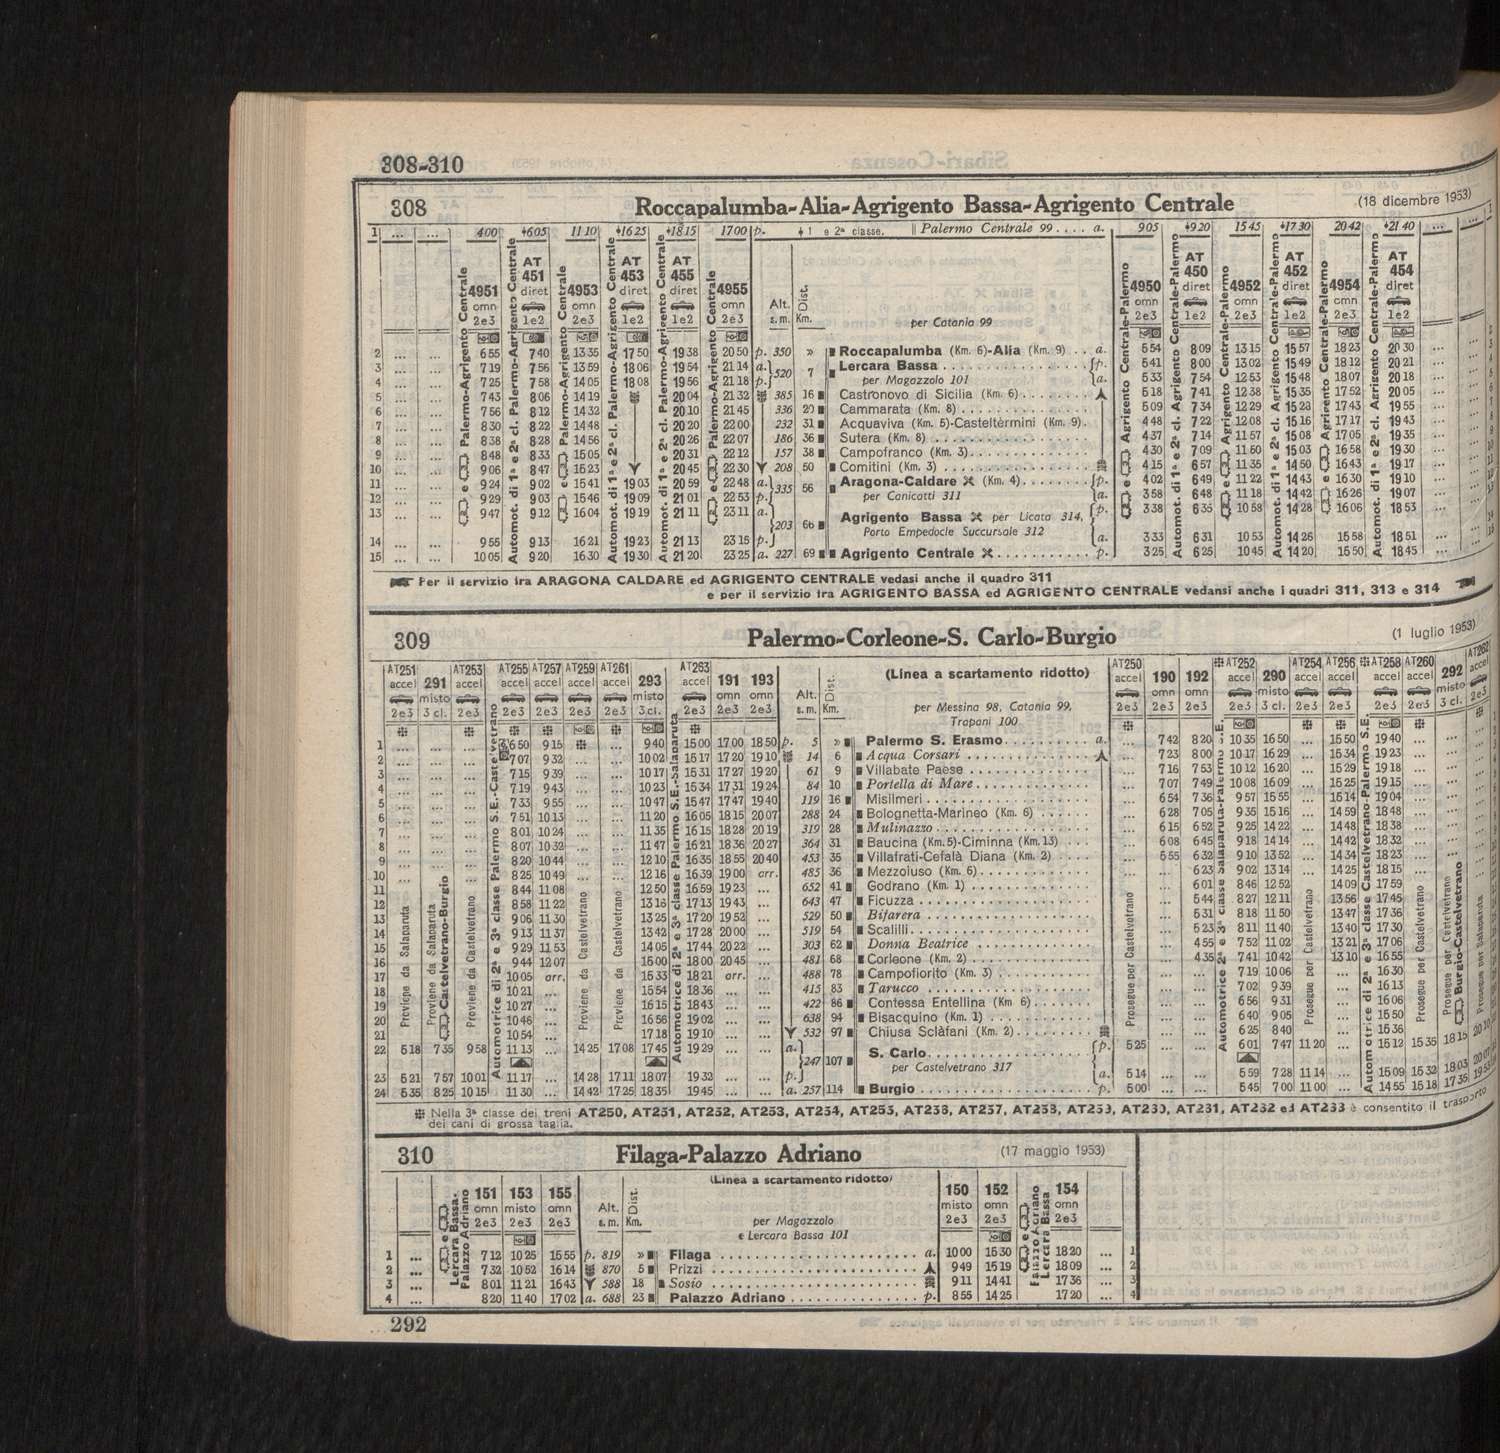 308-310
308 Roccapalumba-Alia-Agrigento Bassa-Agrigento Centrale (18 dicembre 1953)
1 ... ... 4 00 6 05 11 10 16 25 18 15 17 00 p. 1 e 2ª classe. Palermo Centrale 99 .... a. 9 05 9 20 15 45 17 30 20 42 21 40 ... ... 1
4951 omn 2e3
AT 451 diret 1e2
4953 omn 2e3
AT 453 diret 1e2
AT 455 diret 1e2
4955 omn 2e3
Alt. s.m. Dist. Km. per Catania 99
4950 omn 2e3
AT 450 diret 1e2
4952 omn 2e3
AT 452 diret 1e2
4954 omn 2e3
AT 454 diret 1e2
e Palermo-Agrigento Centrale
Automot. di 1ª e 2ª cl. Palermo-Agrigento Centrale
e Palermo-Agrigento Centrale
Automot. di 1ª e 2ª cl. Palermo-Agrigento Centrale
Automot. di 1ª e 2ª cl. Palermo-Agrigento Centrale
e Palermo-Agrigento Centrale
e Agrigento Centrale-Palermo
Automot. di 1ª e 2ª cl. Agrigento Centrale-Palermo
e Agrigento Centrale-Palermo
Automot. di 1ª e 2ª cl. Agrigento Centrale-Palermo
e Agrigento Centrale-Palermo
Automot. di 1ª e 2ª cl. Agrigento Centrale-Palermo
2 ... ... 6 55 7 40 13 35 17 50 19 38 20 50 p. 350 » Roccapalumba (Km. 6)-Alia (Km. 9) .. a. 6 54 8 09 13 15 15 57 18 23 20 30 ...
3 ... ... 7 19 7 56 13 59 18 06 19 54 21 14 a. 520 7 Lercara Bassa ............ p. 5 41 8 00 13 02 15 49 18 12 20 21 ...
4 ... ... 7 25 7 58 14 05 18 08 19 56 21 18 p. per Magazzolo 101 a. 5 33 7 54 12 53 15 48 18 07 20 18 ...
5 ... ... 7 43 8 06 14 19 20 04 21 32 385 16 Castronovo di Sicilia (Km. 6) ........ 5 18 7 41 12 38 15 35 17 52 20 05 ...
6 ... ... 7 56 8 12 14 32 20 10 21 45 336 20 Cammarata (Km. 8) ........ 5 09 7 34 12 29 15 28 17 43 19 55 ...
7 ... ... 8 30 8 22 14 48 20 20 22 00 232 31 Acquaviva (Km. 5)-Casteltèrmini (Km. 9). 4 48 7 22 12 08 15 16 17 17 19 43 ...
8 ... ... 8 38 8 28 14 56 20 26 22 07 186 36 Sutera (Km. 8) ........ 4 37 7 14 11 57 15 08 17 05 19 35 ...
9 ... ... 8 48 8 33 15 05 20 31 22 12 157 38 Campofranco (Km. 3) ........ 4 30 7 09 11 50 15 03 16 58 19 30 ...
10 ... ... 9 06 8 47 15 23 20 45 22 30 208 50 Comitini (Km. 3) ........ 4 15 6 57 11 35 14 50 16 43 19 17 ...
11 ... ... 9 24 9 02 15 41 19 03 20 59 22 48 a. 335 56 Aragona-Caldare (Km. 4) ........ p. 4 02 6 49 11 22 14 43 16 30 19 10 ...
12 ... ... 9 29 9 03 15 46 19 09 21 01 22 53 p. per Canicattì 311 a. 3 58 6 48 11 18 14 42 16 26 19 07 ...
13 ... ... 9 47 9 12 16 04 19 19 21 11 23 11 a. 203 66 Agrigento Bassa per Licata 314, p. 3 38 6 35 10 58 14 28 16 06 18 53 ...
Porto Empedocle Succursale 312
14 ... ... 9 55 9 13 16 21 19 23 21 13 23 15 p. a. 3 33 6 31 10 53 14 26 15 58 18 51 ...
15 ... ... 10 05 9 20 16 30 19 30 21 20 23 25 a. 227 69 Agrigento Centrale ............ p. 3 25 6 25 10 45 14 20 15 50 18 45 ...
Per il servizio tra ARAGONA CALDARE ed AGRIGENTO CENTRALE vedasi anche il quadro 311
e per il servizio tra AGRIGENTO BASSA ed AGRIGENTO CENTRALE vedansi anche i quadri 311, 313 e 314
309 Palermo-Corleone-S. Carlo-Burgio (1 luglio 1953)
AT251 accel 2e3
291 misto 3 cl.
AT253 accel 2e3
AT255 accel 2e3
AT257 accel 2e3
AT259 accel 2e3
AT261 accel 2e3
293 misto 3.cl.
AT263 accel 2e3
191 omn 2e3
193 omn 2e3
Alt. s.m. Dist. Km.
(Linea a scartamento ridotto)
per Messina 98, Catania 99,
Trapani 100
AT250 accel 2e3
190 omn 2e3
192 omn 2e3
AT252 accel 2e3
290 misto 3 cl.
AT254 accel 2e3
AT256 accel 2e3
AT258 accel 2e3
AT260 accel 2e3
292 misto 3 cl.
AT262 accel 2e3
Proviene da Salaparuta
Proviene da Salaparuta
Castelvetrano-Burgio
Proviene da Castelvetrano
Automotrice di 2ª e 3ª classe Palermo S.E.-Castelvetrano
Proviene da Castelvetrano
Proviene da Castelvetrano
Automotrice di 2ª e 3ª classe Palermo S.E.-Salaparuta
Prosegue per Castelvetrano
Automotrice 2ª e 3ª classe Salaparuta-Palermo S.E.
Prosegue per Castelvetrano
Automotrice di 2ª e 3ª classe Castelvetrano-Palermo S.E.
Prosegue per Castelvetrano
Prosegue per Castelvetrano
Burgio-Castelvetrano
Prosegue per Salaparuta
1 ... ... ... 6 50 9 15 ... 9 40 15 00 17 00 18 50 p. 5 » Palermo S. Erasmo .......... a. ... 7 42 8 20 10 35 16 50 ... 15 50 19 40 ... ...
2 ... ... ... 7 07 9 32 ... ... 10 02 15 17 17 20 19 10 14 6 Acqua Corsari ........ ... 7 23 8 00 10 17 16 29 ... 15 34 19 23 ... ...
3 ... ... ... 7 15 9 39 ... ... 10 17 15 31 17 27 19 20 61 9 Villabate Paese ........ ... 7 16 7 53 10 12 16 20 ... 15 29 19 18 ... ...
4 ... ... ... 7 19 9 43 ... ... 10 23 15 34 17 31 19 24 84 10 Portella di Mare ........ ... 7 07 7 49 10 08 16 09 ... 15 25 19 15 ... ...
5 ... ... ... 7 33 9 55 ... ... 10 47 15 47 17 47 19 40 119 16 Misilmeri ........ ... 6 54 7 36 9 57 15 55 ... 15 14 19 04 ... ...
6 ... ... ... 7 51 10 13 ... ... 11 20 16 05 18 15 20 07 288 24 Bolognetta-Marineo (Km. 6) .... ... 6 28 7 05 9 35 15 16 ... 14 59 18 48 ... ...
7 ... ... ... 8 01 10 24 ... ... 11 35 16 15 18 28 20 19 319 28 Mulinazzo ........ ... 6 15 6 52 9 25 14 22 ... 14 48 18 38 ... ...
8 ... ... ... 8 07 10 32 ... ... 11 47 16 21 18 36 20 27 364 31 Baucina (Km.5)-Ciminna (Km.13) ... ... 6 08 6 45 9 18 14 14 ... 14 42 18 32 ... ...
9 ... ... ... 8 20 10 44 ... ... 12 10 16 35 18 55 20 40 453 35 Villafrati-Cefalà Diana (Km. 2) .... ... 5 55 6 32 9 10 13 52 ... 14 34 18 23 ... ...
10 ... ... ... 8 25 10 49 ... ... 12 16 16 39 19 00 arr. 485 36 Mezzoluso (Km. 6) ........ ... 6 23 9 02 13 14 ... 14 25 18 15
11 ... 8 44 11 08 12 50 16 59 19 23 ... 652 41 Godrano (Km. 1) ........ ... 6 01 8 46 12 52 14 09 17 59
12 ... 8 58 11 22 13 16 17 13 19 43 ... 643 47 Ficuzza ........ ... 5 44 8 27 12 11 13 56 17 45
13 9 06 11 30 13 25 17 20 19 52 ... 529 50 Bifarera ........ ... 5 31 8 18 11 50 13 47 17 36
14 9 13 11 37 13 42 17 28 20 00 ... 519 54 Scalilli ........ ... 5 23 8 11 11 40 13 40 17 30
15 9 29 11 53 14 05 17 44 20 22 ... 303 62 Donna Beatrice ........ ... 4 55 7 52 11 02 13 21 17 06
16 9 44 12 07 15 00 18 00 20 45 ... 481 68 Corleone (Km. 2) ........ ... 4 35 7 41 10 42 13 10 16 55
17 10 05 arr. 15 33 18 21 arr. ... 488 78 Campofiorito (Km. 3) ........ ... ... 7 19 10 06 ... 16 30
18 10 21 ... 15 54 18 36 ... ... 415 83 Tarucco ........ ... ... 7 02 9 39 ... 16 13
19 10 27 ... 16 15 18 43 ... ... 422 86 Contessa Entellina (Km 6) ........ ... ... 6 56 9 31 ... 16 06
20 10 46 ... 16 56 19 02 ... ... 638 94 Bisacquino (Km. 1) ........ ... ... 6 40 9 05 ... 15 50
21 10 54 ... 17 18 19 10 ... ... 532 97 Chiusa Sclàfani (Km. 2) ........ ... ... 6 25 8 40 ... 15 36
22 5 18 7 35 9 58 11 13 ... 14 25 17 08 17 45 19 29 ... ... a. 247 107 S. Carlo ............ p. 5 25 ... ... 6 01 7 47 11 20 ... 15 12 15 35 18 15 20 10
per Castelvetrano 317
23 5 21 7 57 10 01 11 17 ... 14 28 17 11 18 07 19 32 ... ... p. a. 5 14 ... ... 5 59 7 28 11 14 ... 15 09 15 32 18 03 20 07
24 5 35 8 25 10 15 11 30 ... 14 42 17 25 18 35 19 45 ... ... a. 257 114 Burgio ............ p. 5 00 ... ... 5 45 7 00 11 00 ... 14 55 15 18 17 35
Nella 3ª classe dei treni AT250, AT251, AT252, AT253, AT254, AT255, AT256, AT257, AT258, AT259, AT260, AT261, AT262 ed AT263 è consentito il trasporto
dei cani di grossa taglia.
310 Filaga-Palazzo Adriano (17 maggio 1953)
e Lercara Bassa-Palazzo Adriano
151 omn 2e3
153 misto 2e3
155 omn 2e3
Alt. s.m. Dist. Km.
(Linea a scartamento ridotto)
per Magazzolo
e Lercara Bassa 101
150 misto 2e3
152 omn 2e3
e Palazzo Adriano Lercara Bassa
154 omn 2e3
1 ... 7 12 10 25 15 55 p. 819 » Filaga ........................ a. 10 00 15 30 18 20 ... 1
2 ... 7 32 10 52 16 14 870 5 Prizzi ........................ 9 49 15 19 18 09 ... 2
3 ... 8 01 11 21 16 43 588 18 Sosio ........................ 9 11 14 41 17 36 ... 3
4 ... 8 20 11 40 17 02 a. 688 23 Palazzo Adriano ............... p. 8 55 14 25 17 20 ... 4
292